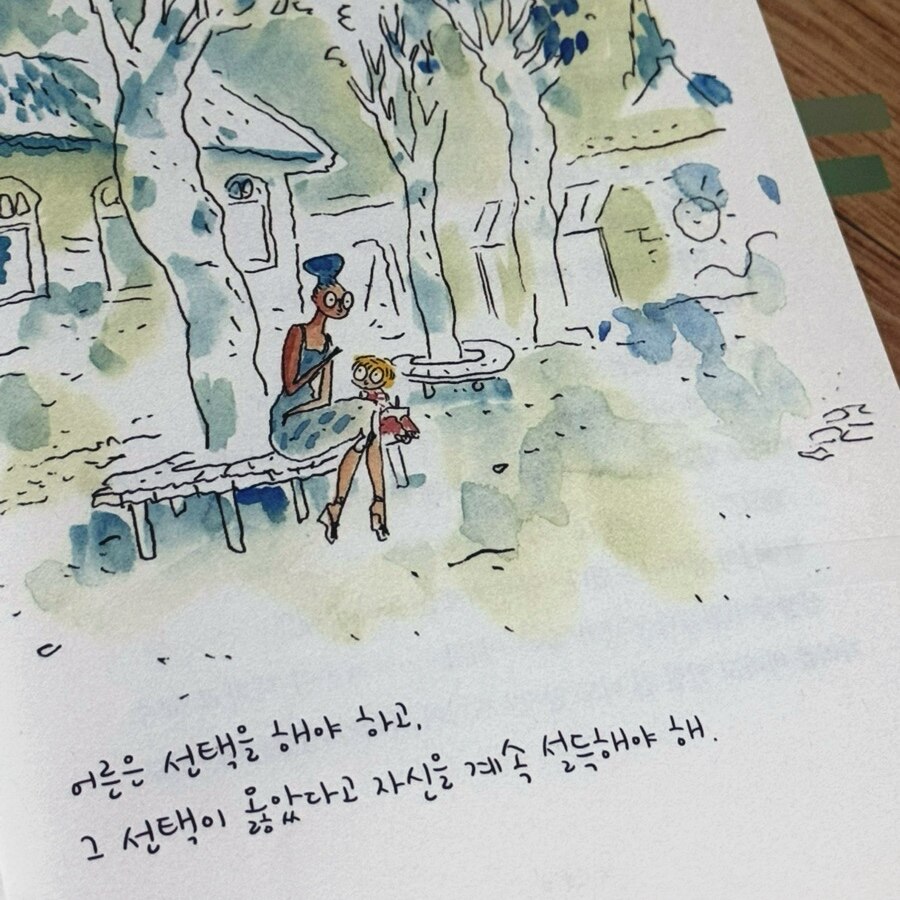 어른은 선택을 해야 하고,
그 선택이 옳았다고 자신을 계속 설득해야 해.